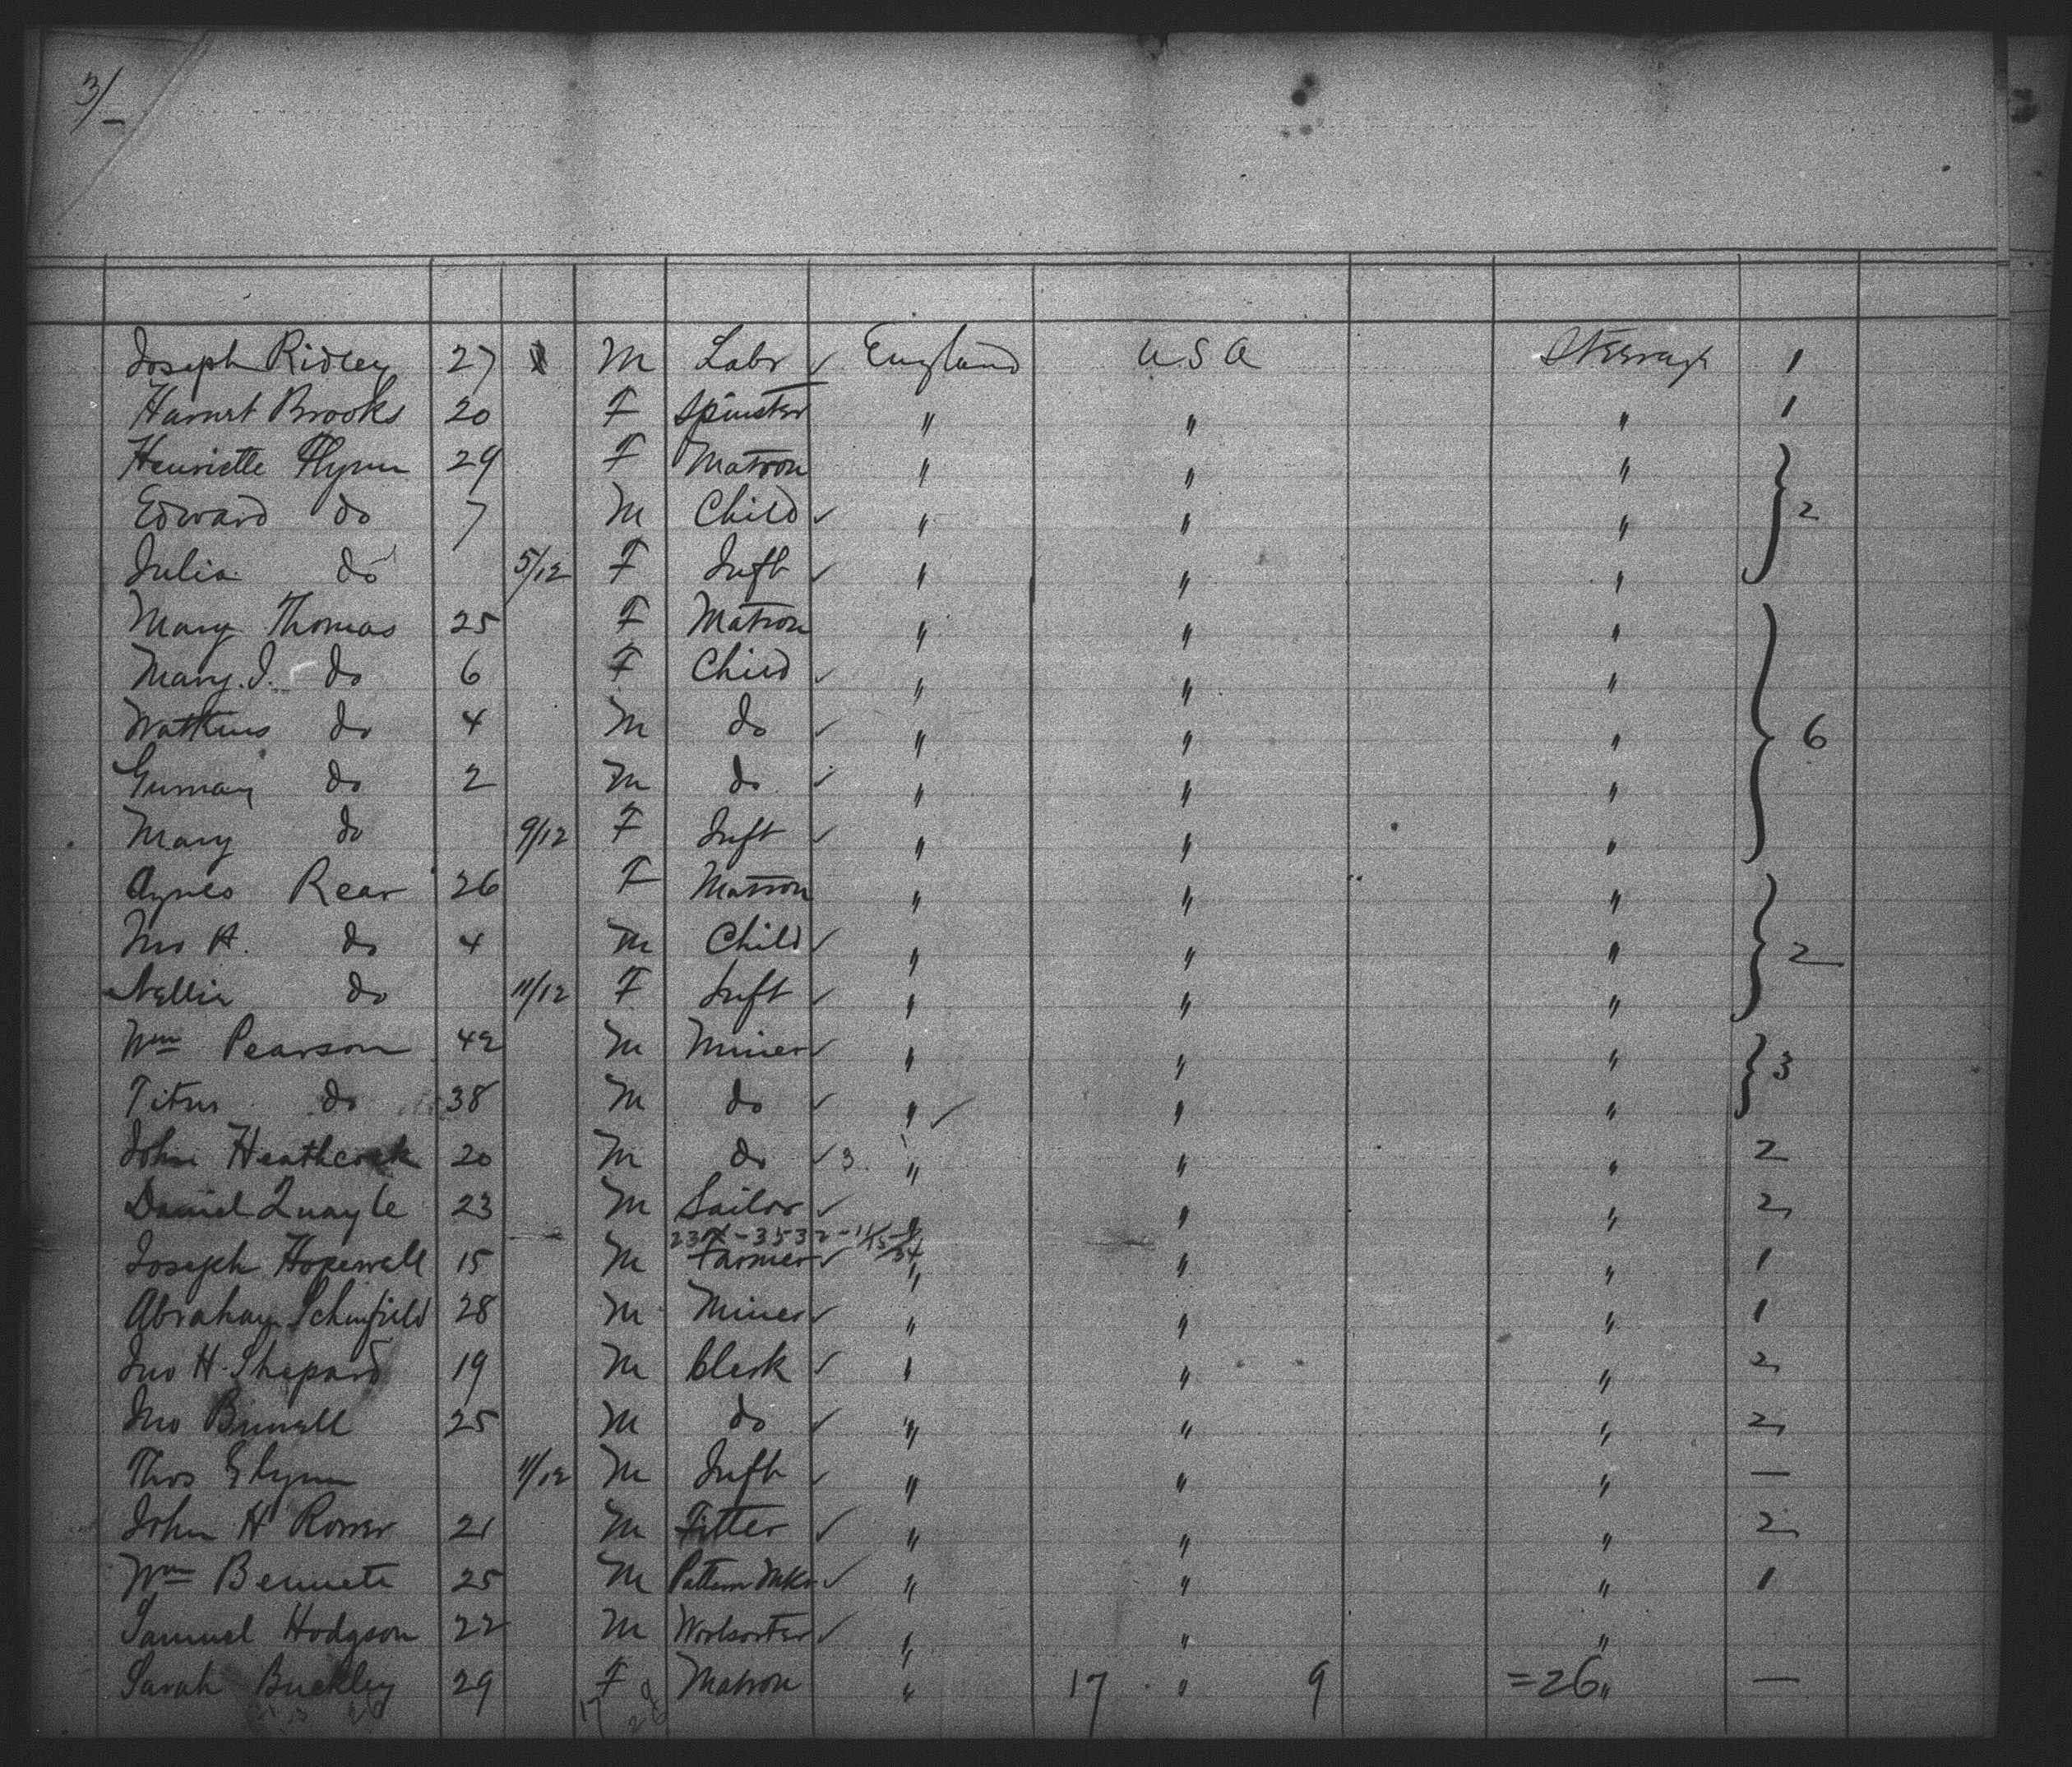 3/-
Joseph Ridley 27 M Labr ✓ England U.S.A Steerage 1
Harriet Brooks 20 F Spinster " " " 1
Henriette Glynn 29 F Matron " " "
Edward do 7 M Child ✓ " " " } 2
Julia do 5/12 F Inft ✓ " " "
Mary Thomas 25 F Matron " " "
Mary. J. do 6 F Child ✓ " " "
Watkins do 4 M do ✓ " " " } 6
do 2 M do ✓ " " "
Mary do 9/12 F Inft ✓ " " "
Agnes Rear 26 F Matron " " "
Jno H. do 4 M Child ✓ " " " } 2
Nellie do 11/12 F Inft ✓ " " "
Wm Pearson 42 M Miner ✓ " " " } 3
Titus do 38 M do ✓ " ✓ " "
John Heathcock 20 M do ✓ 3 " " " 2
Daniel Quayle 23 M Sailor ✓ " " " 2
Joseph Hopewell 15 M Farmer ✓ " " " 1
Abraham 28 M Miner ✓ " " " 1
Jno H. Shepard 19 M Clerk ✓ " " " 2
Jno 25 M do ✓ " " " 2
Thos Glynn 11/12 M Inft ✓ " " " —
John H 21 M Fitter ✓ " " " 2
Wm Bennett 25 M Pattern Mkr ✓ " " " 1
Samuel Hodgson 22 M Woolsorter ✓ " " "
Sarah Buckley 29 F Matron " 17 " 9 =26 " —